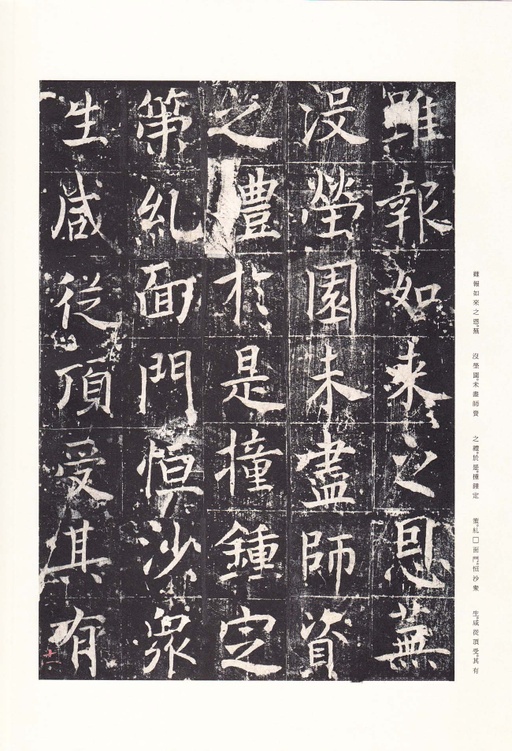 雖報如来之恩蕪
没塋園未盡師資
之禮於是撞鍾定
第乣面門恒沙衆
生咸從頂受其有
雖報如來之恩。蕪　没塋園。未盡師資　之禮。於是。撞鍾定　第。乣□面門。恒沙衆　生。咸從頂受。其有